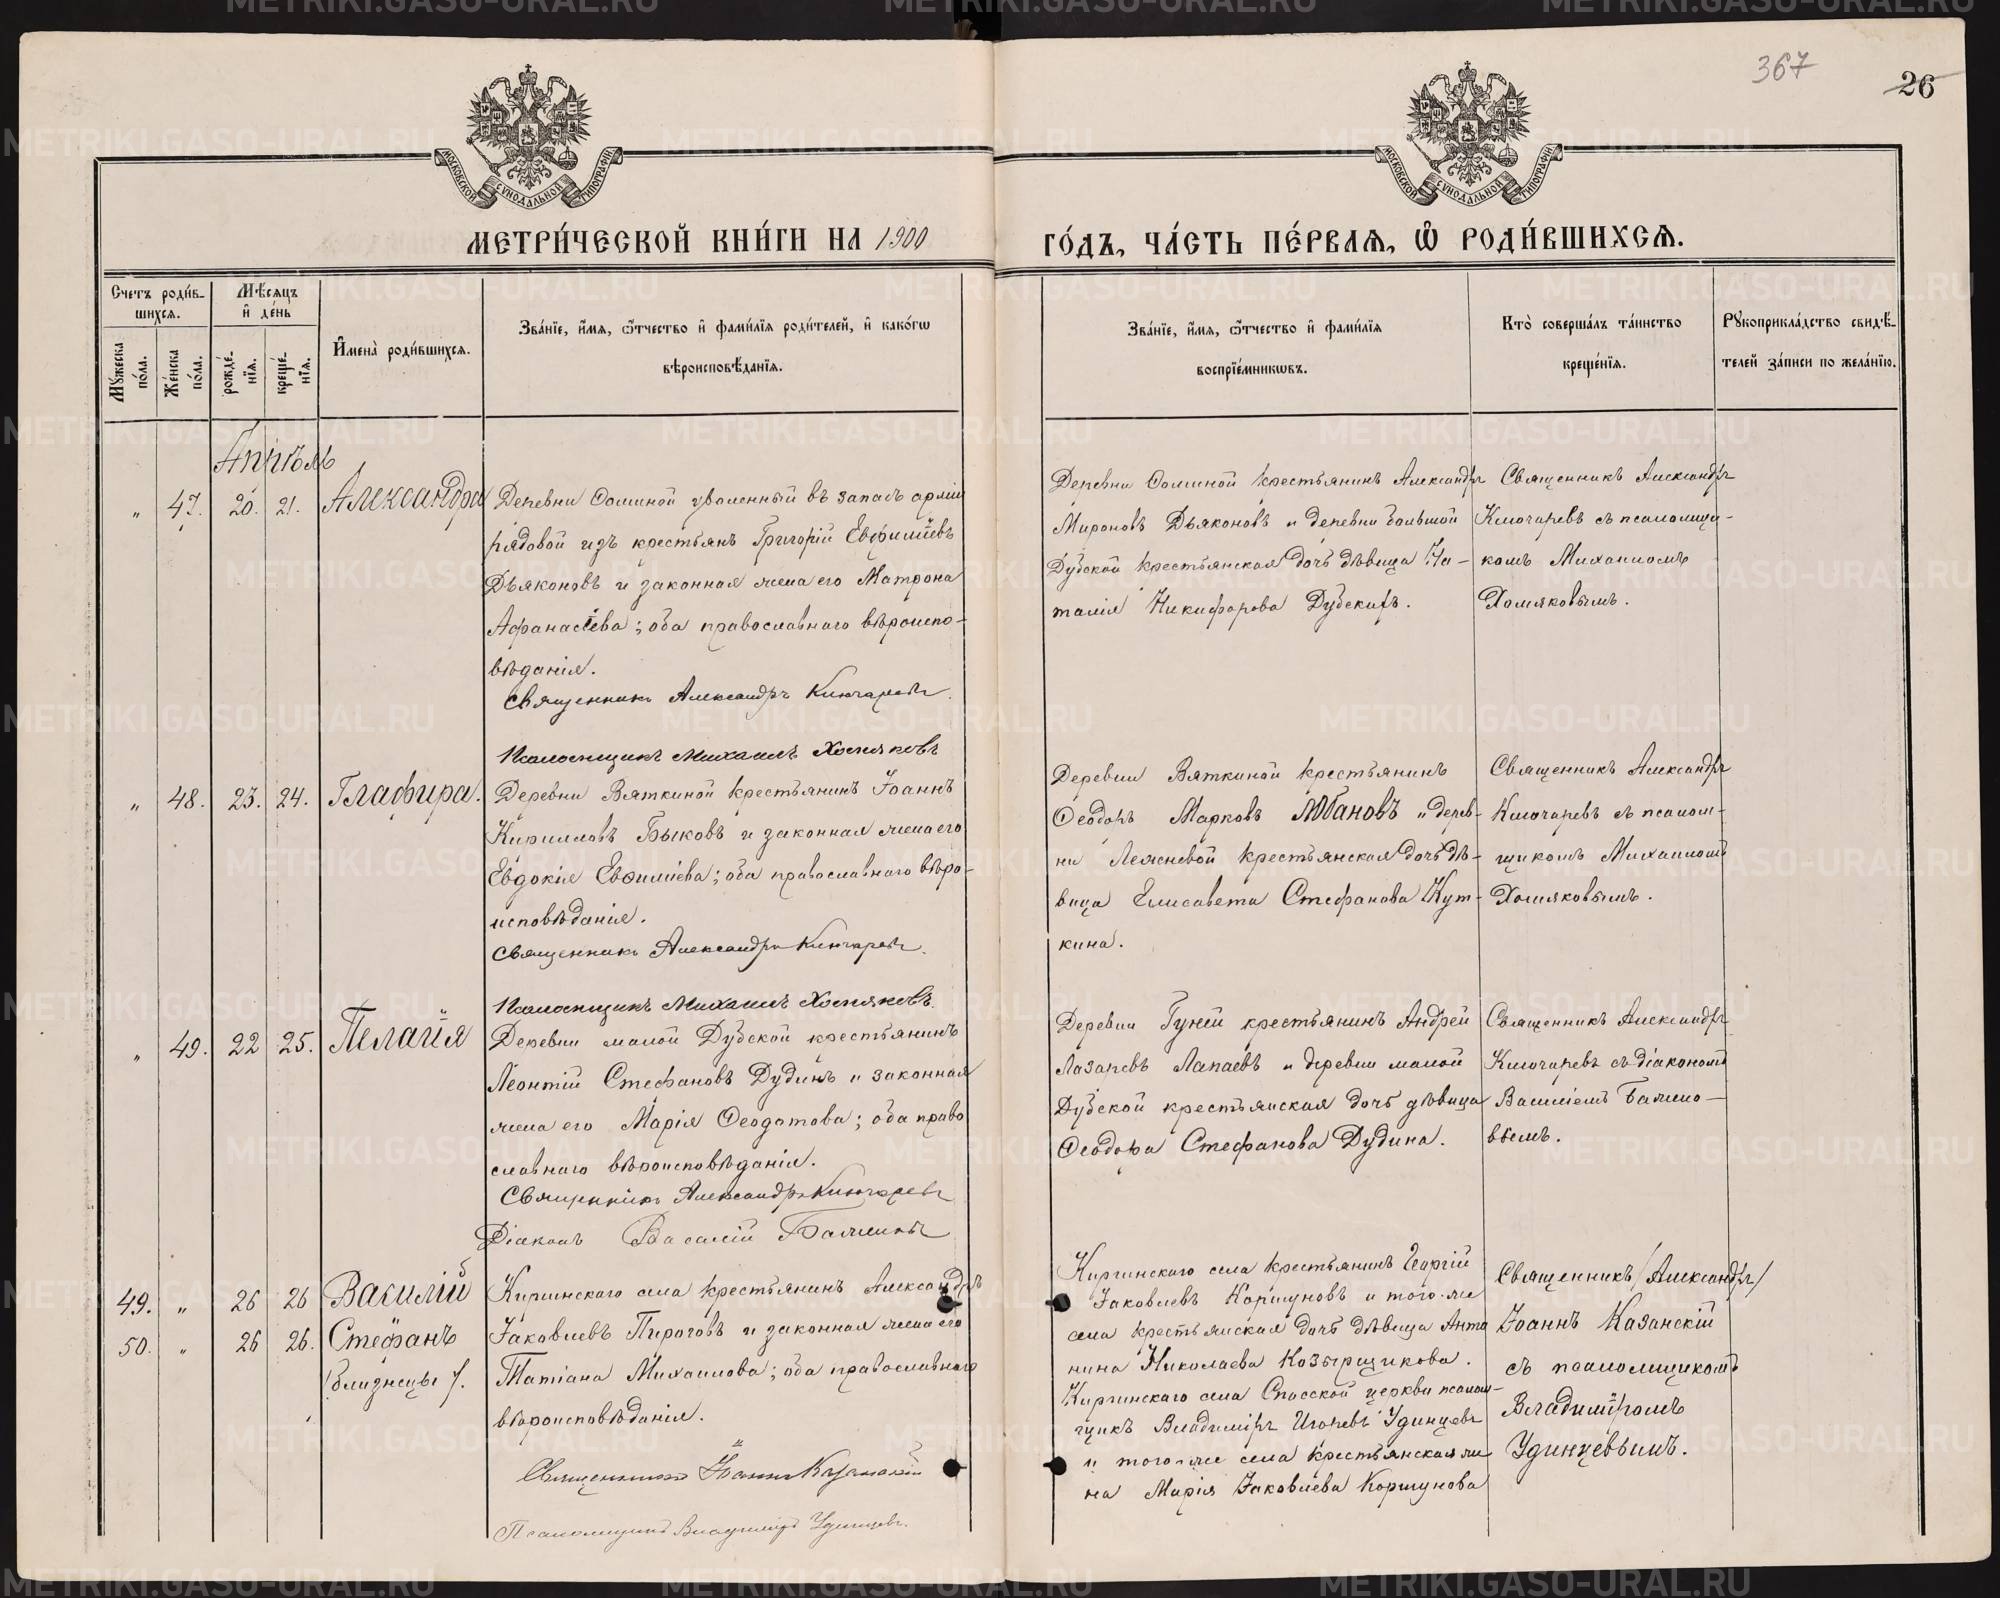 367
26
МОСКОВСКОЙ СѴНОДАЛЬНОЙ ТИПОГРАФІИ
МОСКОВСКОЙ СѴНОДАЛЬНОЙ ТИПОГРАФІИ
МЕТРИ́ЧЕСКОЙ КНИ́ГИ НА 1900
ГО́ДЪ, ЧА́СТЬ ПЕ́РВАѦ, Ѡ҆ РОДИ́ВШИХСѦ.
Счетъ роди́в-
шихсѧ.
Мѣ́сѧцъ
и҆ де́нь
Мꙋ́жеска по́ла.
Же́нска по́ла.
рожде́-
нїѧ.
креще́-
нїѧ.
И҆мена̀ роди́вшихсѧ.
Зва́нїе, и҆́мѧ, ѻ҆́тчество и҆ фами́лїѧ роди́телей, и҆ како́гѡ
вѣроисповѣ́данїѧ.
Зва́нїе, и҆́мѧ, ѻ҆́тчество и҆ фами́лїѧ
воспрїе́мникѡвъ.
Кто̀ соверша́лъ та́инство
креще́нїѧ.
Рꙋкоприкла́дство свидѣ́-
телей за́писи по жела́нїю.
Апрѣль
" 47. 20. 21. Александра
Деревни Соминой уволенный въ запасъ арміи
рядовой изъ крестьянъ Григорій Евфиміевъ
Дьяконовъ и законная жена его Матрона
Афанасіева; оба православнаго вѣроиспо-
вѣданія.
Священникъ Александръ Ключаревъ.
Псаломщикъ Михаилъ Хомяковъ
Деревни Соминой крестьянинъ Александръ
Мироновъ Дьяконовъ и деревни большой
Дубской крестьянская дочь дѣвица На-
талія Никифорова Дубскихъ.
Священникъ Александръ
Ключаревъ съ псаломщи-
комъ Михаиломъ
Хомяковымъ.
" 48. 23. 24. Глафира.
Деревни Вяткиной крестьянинъ Іоаннъ
Кирилловъ Быковъ и законная жена его
Евдокія Евфиміева; оба православнаго вѣро-
исповѣданія.
Священникъ Александръ Ключаревъ.
Псаломщикъ Михаилъ Хомяковъ.
Деревни Вяткиной крестьянинъ
Ѳеодоръ Марковъ и дерев-
ни Лежневой крестьянская дочь дѣ-
вица Елисавета Стефанова Кут-
кина.
Священникъ Александръ
Ключаревъ съ псалом-
щикомъ Михаиломъ
Хомяковымъ.
" 49. 22 25. Пелагія
Деревни малой Дубской крестьянинъ
Леонтій Стефановъ Дудинъ и законная
жена его Марія Ѳеодотова; оба право
славнаго вѣроисповѣданія.
Священникъ Александръ Ключаревъ
Діаконъ Василій
Деревни Гуней крестьянинъ Андрей
Лазаревъ Лапаевъ и деревни малой
Дубской крестьянская дочь дѣвица
Ѳеодора Стефанова Дудина.
Священникъ Александръ
Ключаревъ съ діакономъ
Василіемъ
вымъ.
49. " 26 26 Василій
50. " 26 26. Стефанъ
(близнецы).
Киргинскаго села крестьянинъ Александръ
Іаковлевъ Пироговъ и законная жена его
Татіана Михаилова; оба православнаго
вѣроисповѣданія.
Священникъ Іоаннъ Казанскій
Псаломщикъ Владиміръ Удинцевъ.
Киргинскаго села крестьянинъ Георгій
Іаковлевъ Коршуновъ и того-же
села крестьянская дочь дѣвица Анто
нина Николаева Козырщикова.
Киргинскаго села Спасской церкви псалом-
щикъ Владиміръ Игоревъ Удинцевъ
и того-же села крестьянская же
на Марія Іаковлева Коршунова
Священникъ (Александръ)
Іоаннъ Казанскій
съ псаломщикомъ
Владиміромъ
Удинцевымъ.